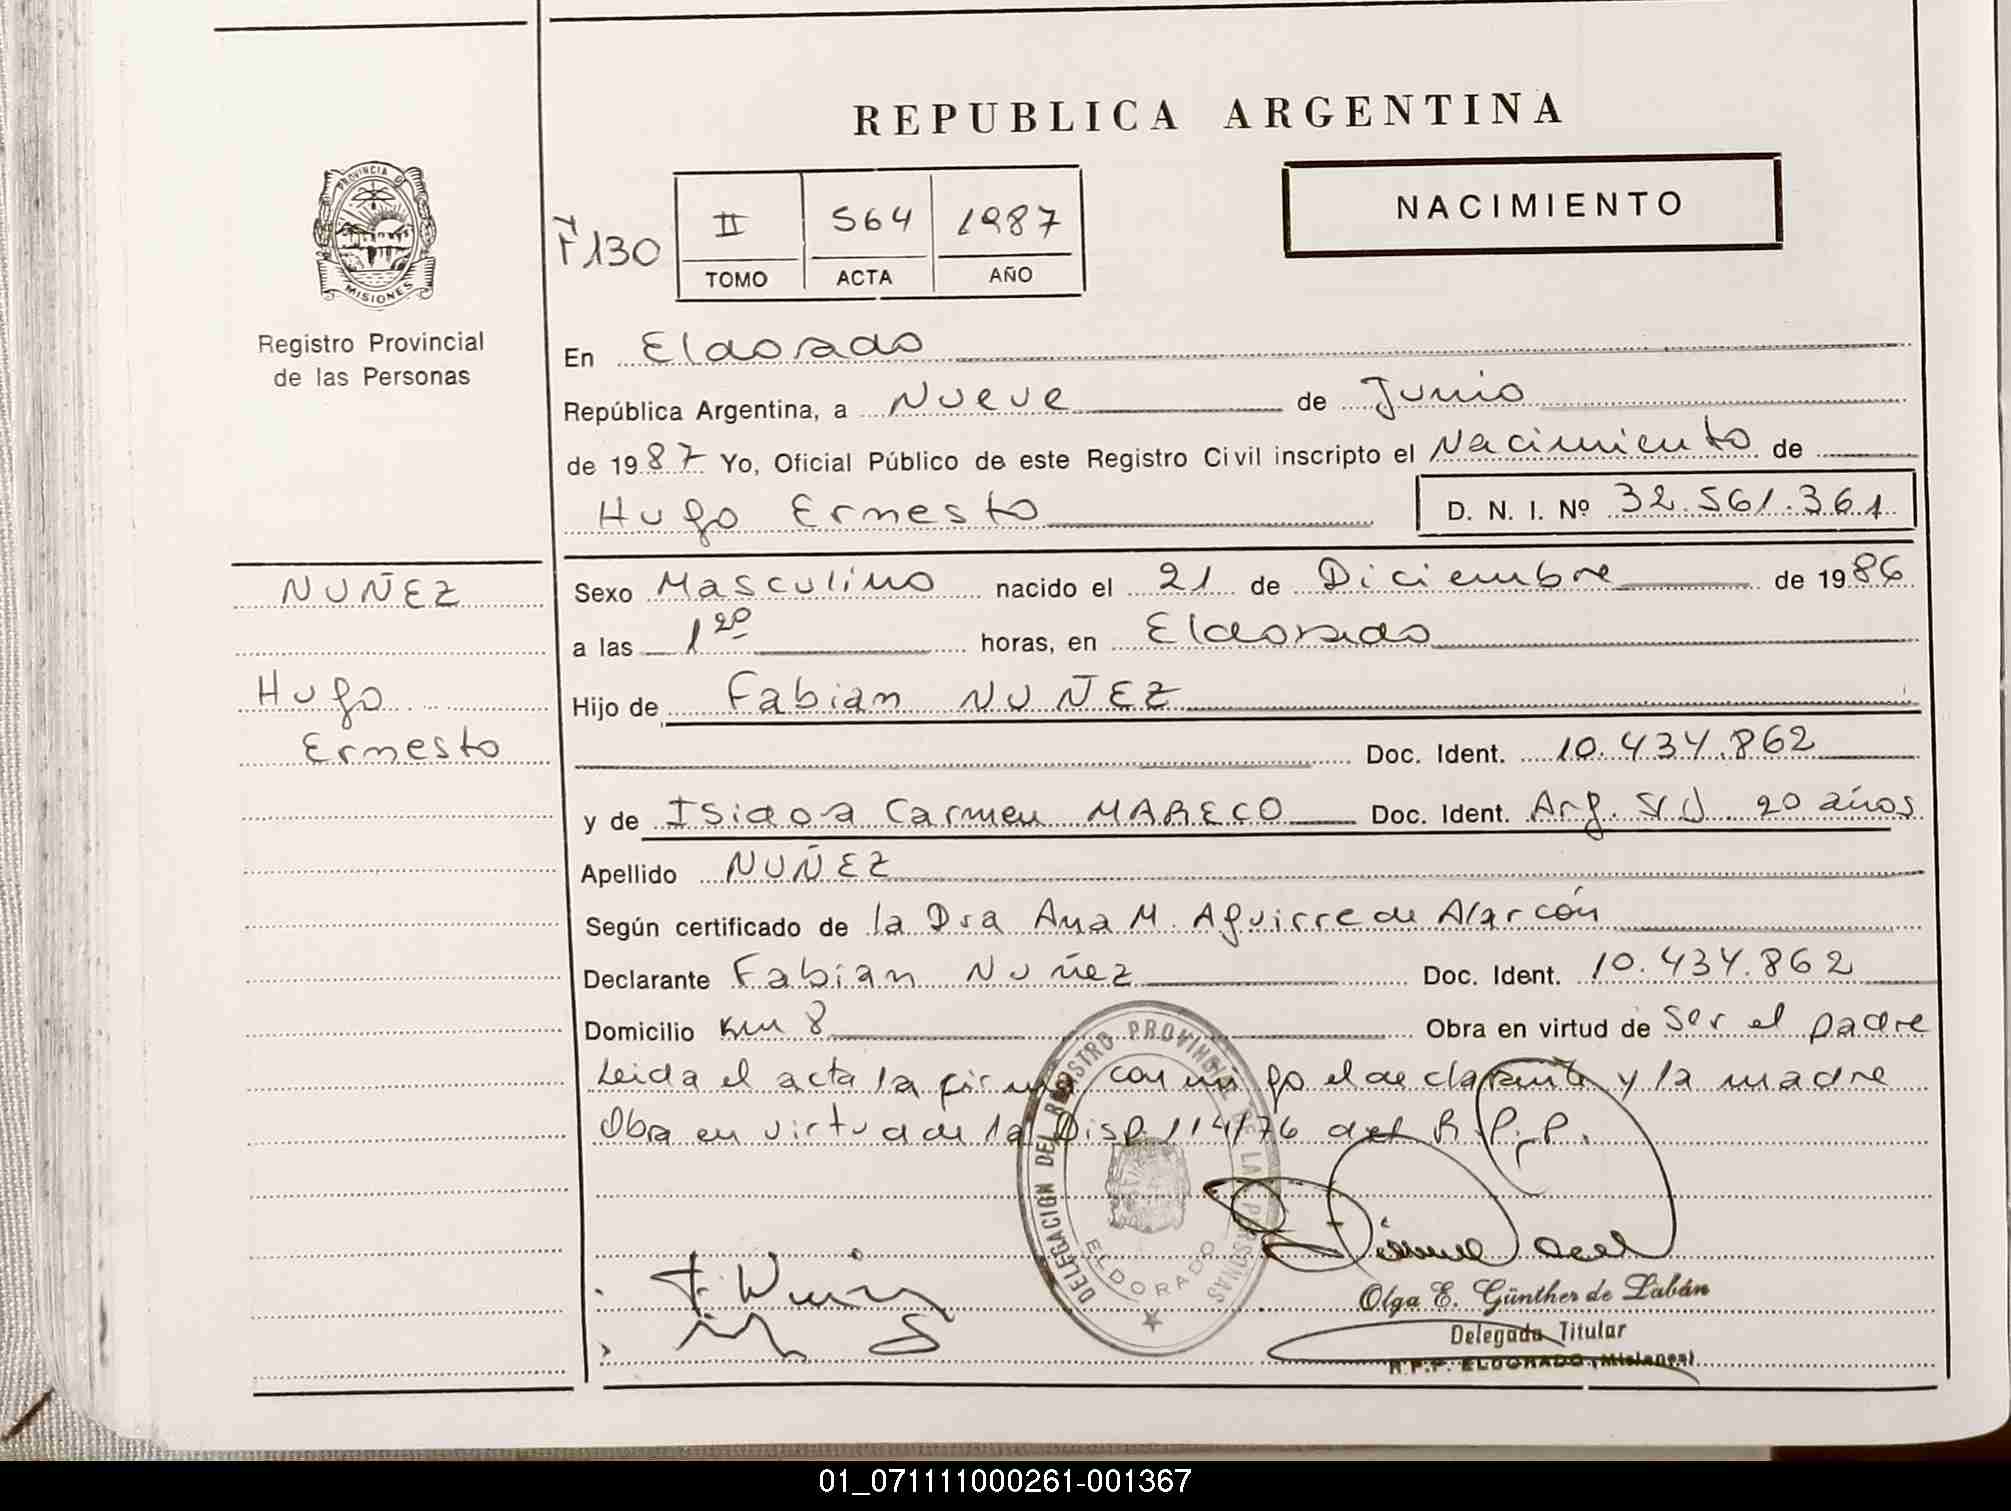 REPUBLICA ARGENTINA
PROVINCIA D
MISIONES
Registro Provincial
de las Personas
Fº130
II 564 1987
TOMO ACTA AÑO
NACIMIENTO
En Eldorado
República Argentina, a Nueve de Junio
de 1987 Yo, Oficial Público de este Registro Civil inscripto el Nacimiento de
Hugo Ernesto D. N. I. Nº 32.561.361
NUÑEZ
Hugo
Ernesto
Sexo Masculino nacido el 21 de Diciembre de 1986
a las 1 20 horas, en Eldorado
Hijo de Fabian NUÑEZ
Doc. Ident. 10.434.862
y de Isidora Carmen MARECO Doc. Ident. Arg. S/D 20 años
Apellido NUÑEZ
Según certificado de la Dra Ana M. Aguirre de Alarcón
Declarante Fabian Nuñez Doc. Ident. 10.434.862
Domicilio Km 8 Obra en virtud de Ser el padre
Leida el acta la firma con migo el declarante y la madre
Obra en virtud de la Disp 114/76 del R.P.P.
DELEGACION DEL REGISTRO PROVINCIAL DE LAS PERSONAS
ELDORADO
Olga E. Günther de Labán
Delegada Titular
R.P.P. ELDORADO (Misiones)
01_071111000261-001367